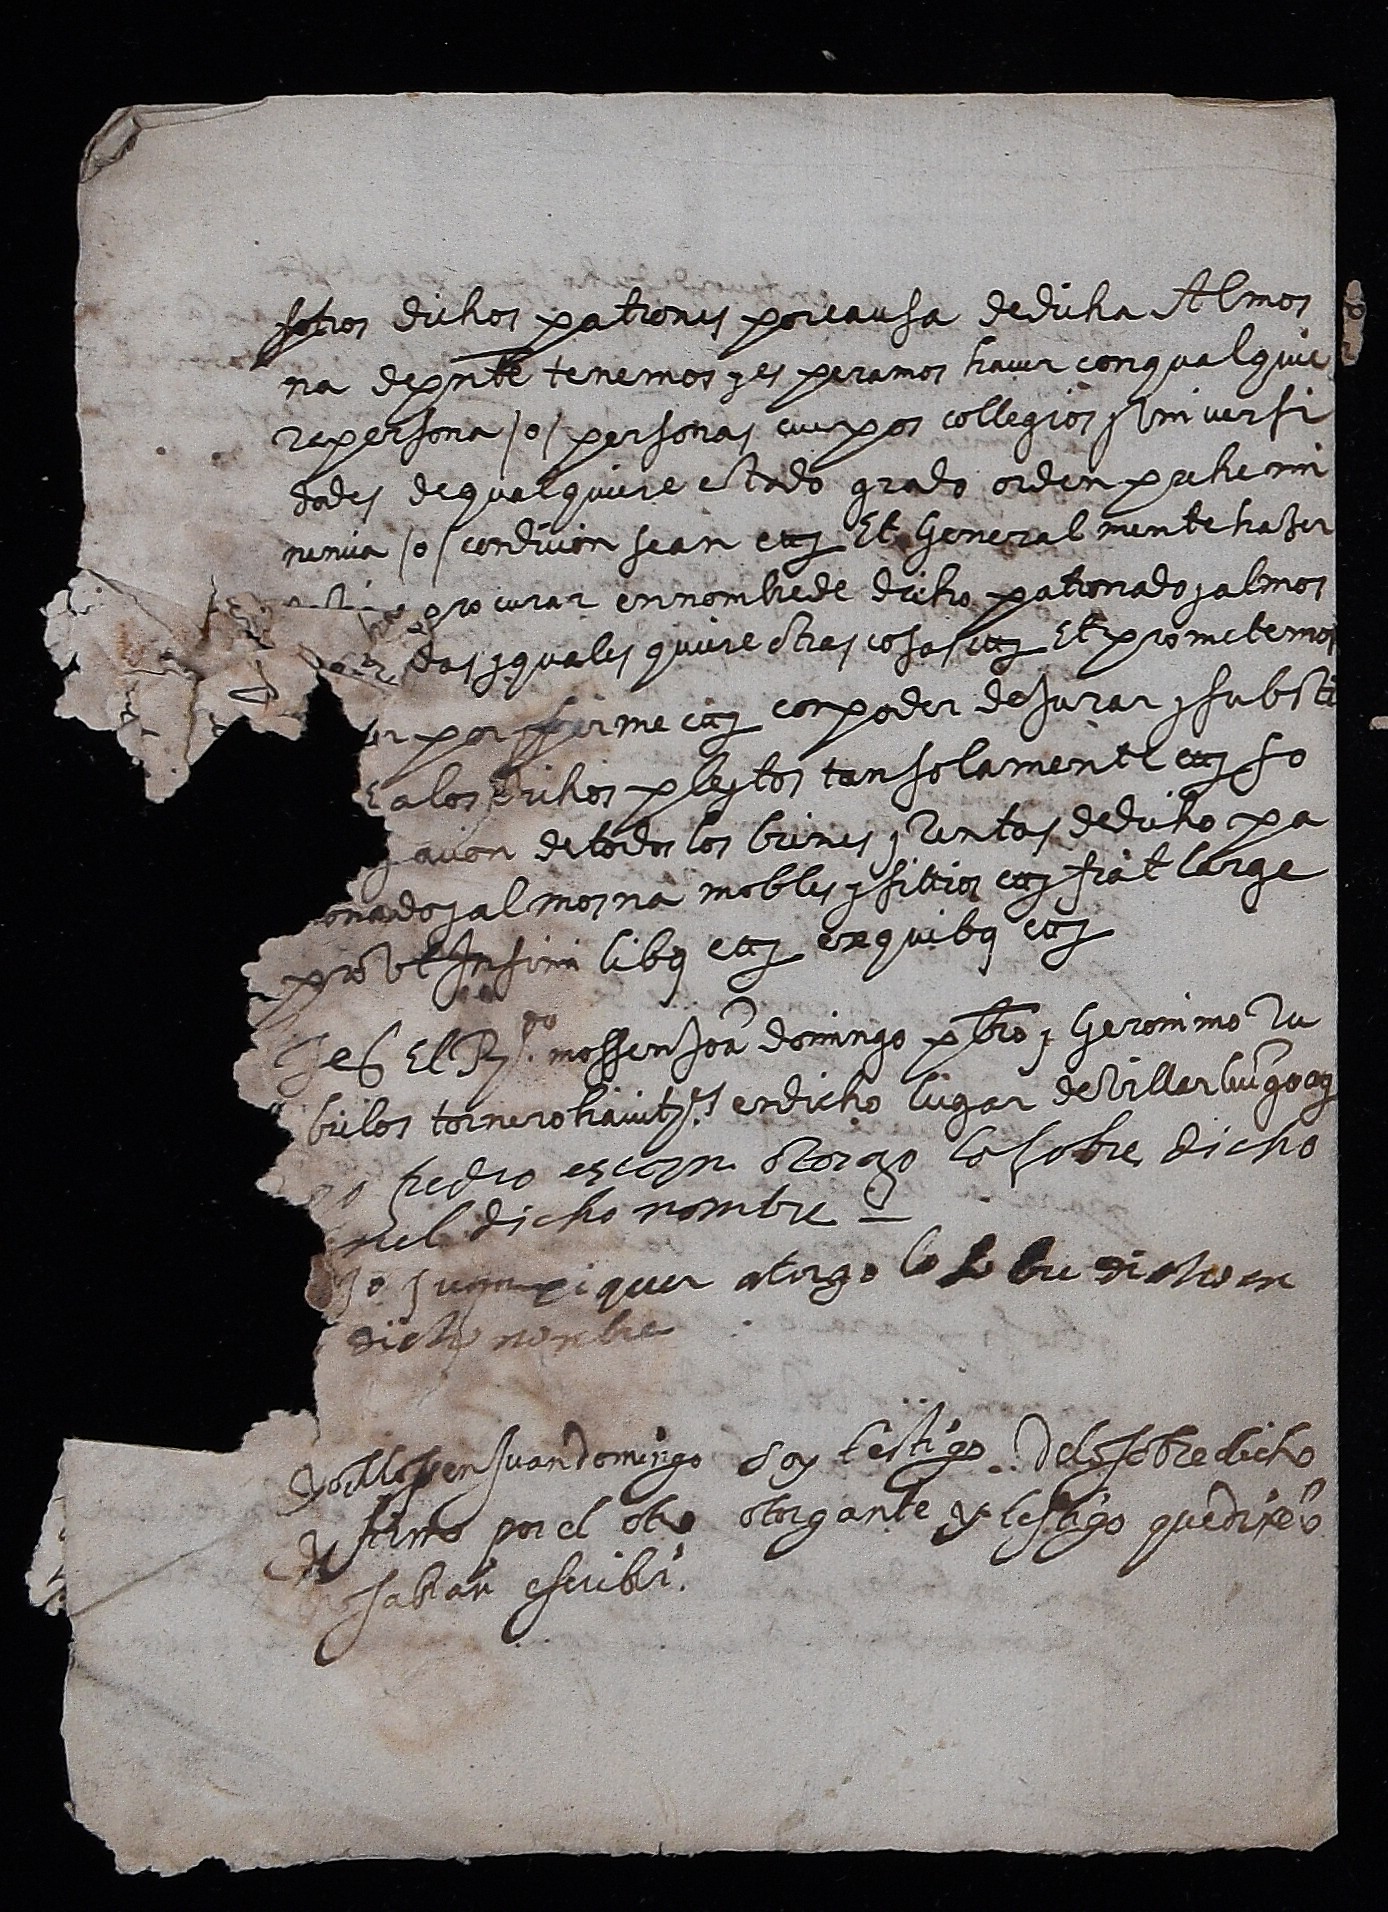 sotros dichos patrones por causa de dicha Almos
na de pnte tenemos y es peramos haver con qualquie
re persona /o/ personas cuerpos collegios y Universi
dades de qualquiere estado grado orden prehemi
nencia /o/ condicion sean etcj Et Generalmente hazer
procurar en nombre de dicho patronado y almos
das y quales quiere otras cosas etcj Et prometemos
er por firme etcj con poder de Jurar y substi
a los dichos pleytos tan solamente etcj so
gacion de todos los bienes y rentas de dicho pa
onado y almosna mobles y sittios etcj fiat large
prout In simi libq etcj ex quibq etcj
Tes El Rdo. mossen Joā domingo pbro y Geronimo Ru
bielos tornero havittes. en dicho lugar de Villarluēgo
yo Pedro escon otorgo lo sobre dicho
nel dicho nombre
yo Juan piquer atorgo lo sobre dicho en
dicho nombre
Yo Mossen Juan Domingo soy testigo Delo sobredicho
y firmo por el otro otorgante y testigo que dixerō
no sabian escribir.